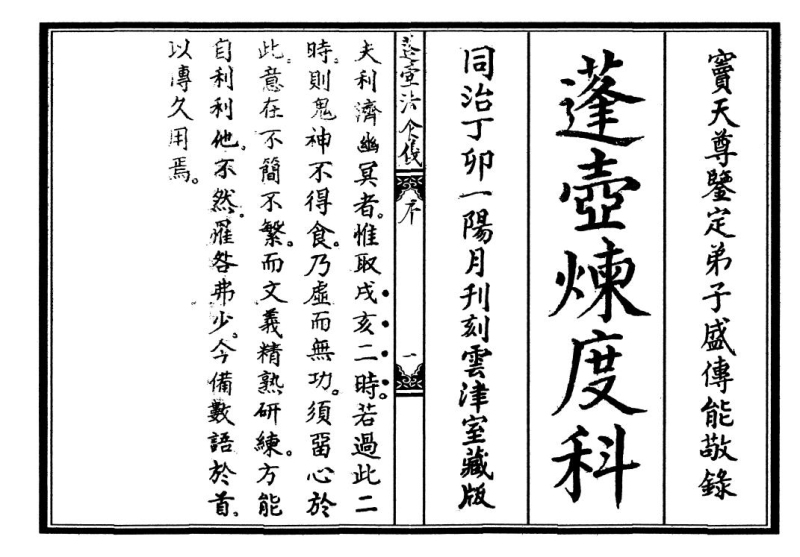 竇天尊鑒定弟子盛傳能敬錄
蓬壺煉度科
同治丁卯一陽月刊刻雲津室藏版
蓬壺法食儀 序 一
夫利濟幽冥者。惟取戌亥二時。若過此二
時。則鬼神不得食。乃虛而無功。須畱心於
此。意在不簡不繁。而文義精熟研練。方能
自利利他。不然。罹咎弗少。今備數語於首。
以傳久用焉。